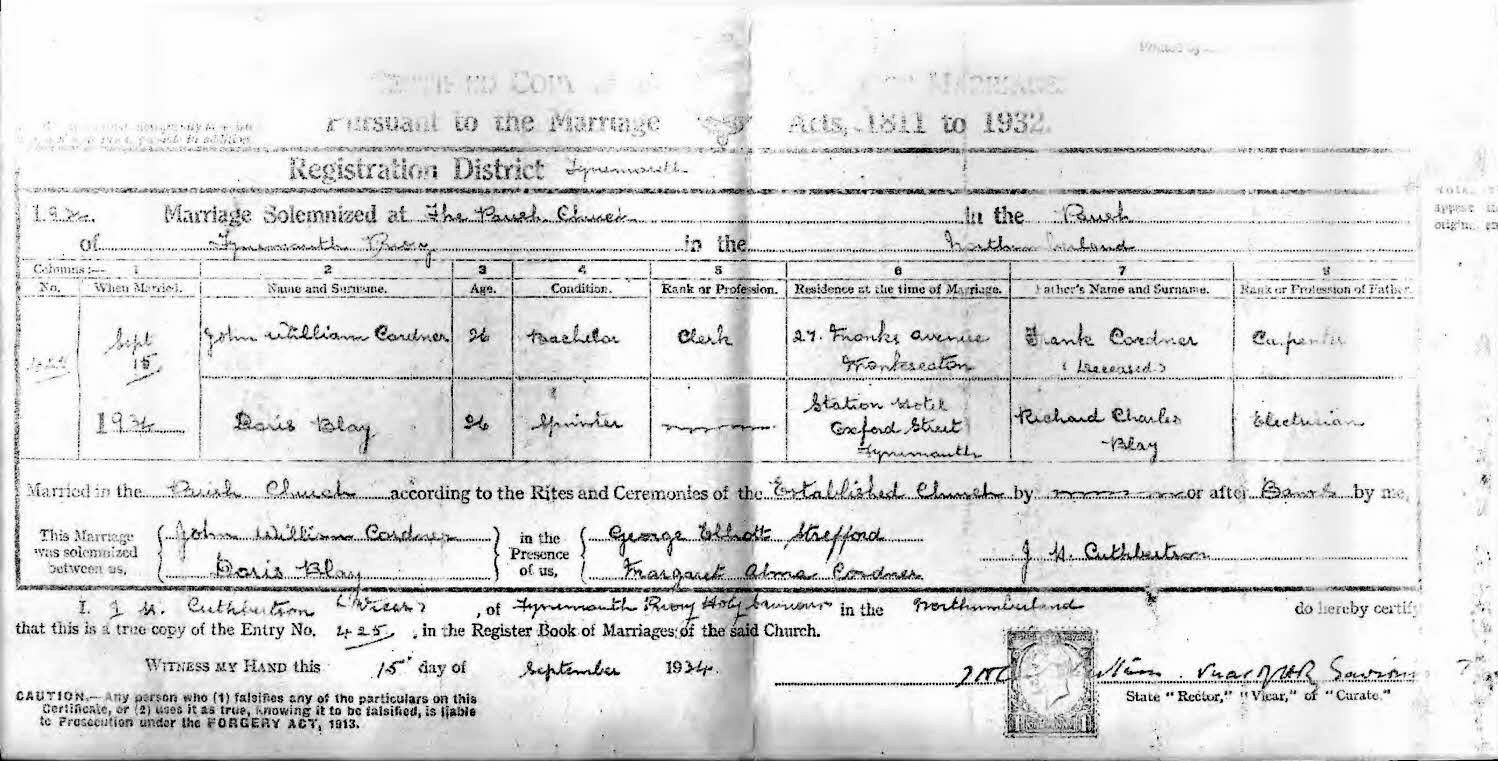 Printed by
CERTIFIED COPY OF MARRIAGE
Pursuant to the Marriage Acts, 1811 to 1932.
Registration District Tynemouth
1934. Marriage Solemnized at The Parish Church in the Parish
of Tynemouth Priory in the Northumberland
Columns:— 1 2 3 4 5 6 7 8
No. When Married. Name and Surname. Age. Condition. Rank or Profession. Residence at the time of Marriage. Father's Name and Surname. Rank or Profession of Father.
425 Sept 15 John William Cordner 26 Bachelor Clerk 27. Monks Avenue Monkseaton Frank Cordner (Deceased) Carpenter
1934 Doris Blay 26 Spinster Station Hotel Oxford Street Tynemouth Richard Charles Blay Electrician
Married in the Parish Church according to the Rites and Ceremonies of the Established Church by or after Banns by me,
This Marriage was solemnized between us, John William Cordner Doris Blay in the Presence of us, George Elliott Strefford Margaret Alma Cordner J H. Cuthbertson
I. J H. Cuthbertson (Vicar), of Tynemouth Priory Holy Saviours in the Northumberland do hereby certify
that this is a true copy of the Entry No. 425, in the Register Book of Marriages of the said Church.
WITNESS MY HAND this 15 day of September 1934.
Vicar of H Saviour
State "Rector," "Vicar," or "Curate."
CAUTION.—Any person who (1) falsifies any of the particulars on this
Certificate, or (2) uses it as true, knowing it to be falsified, is liable
to Prosecution under the FORGERY ACT, 1913.